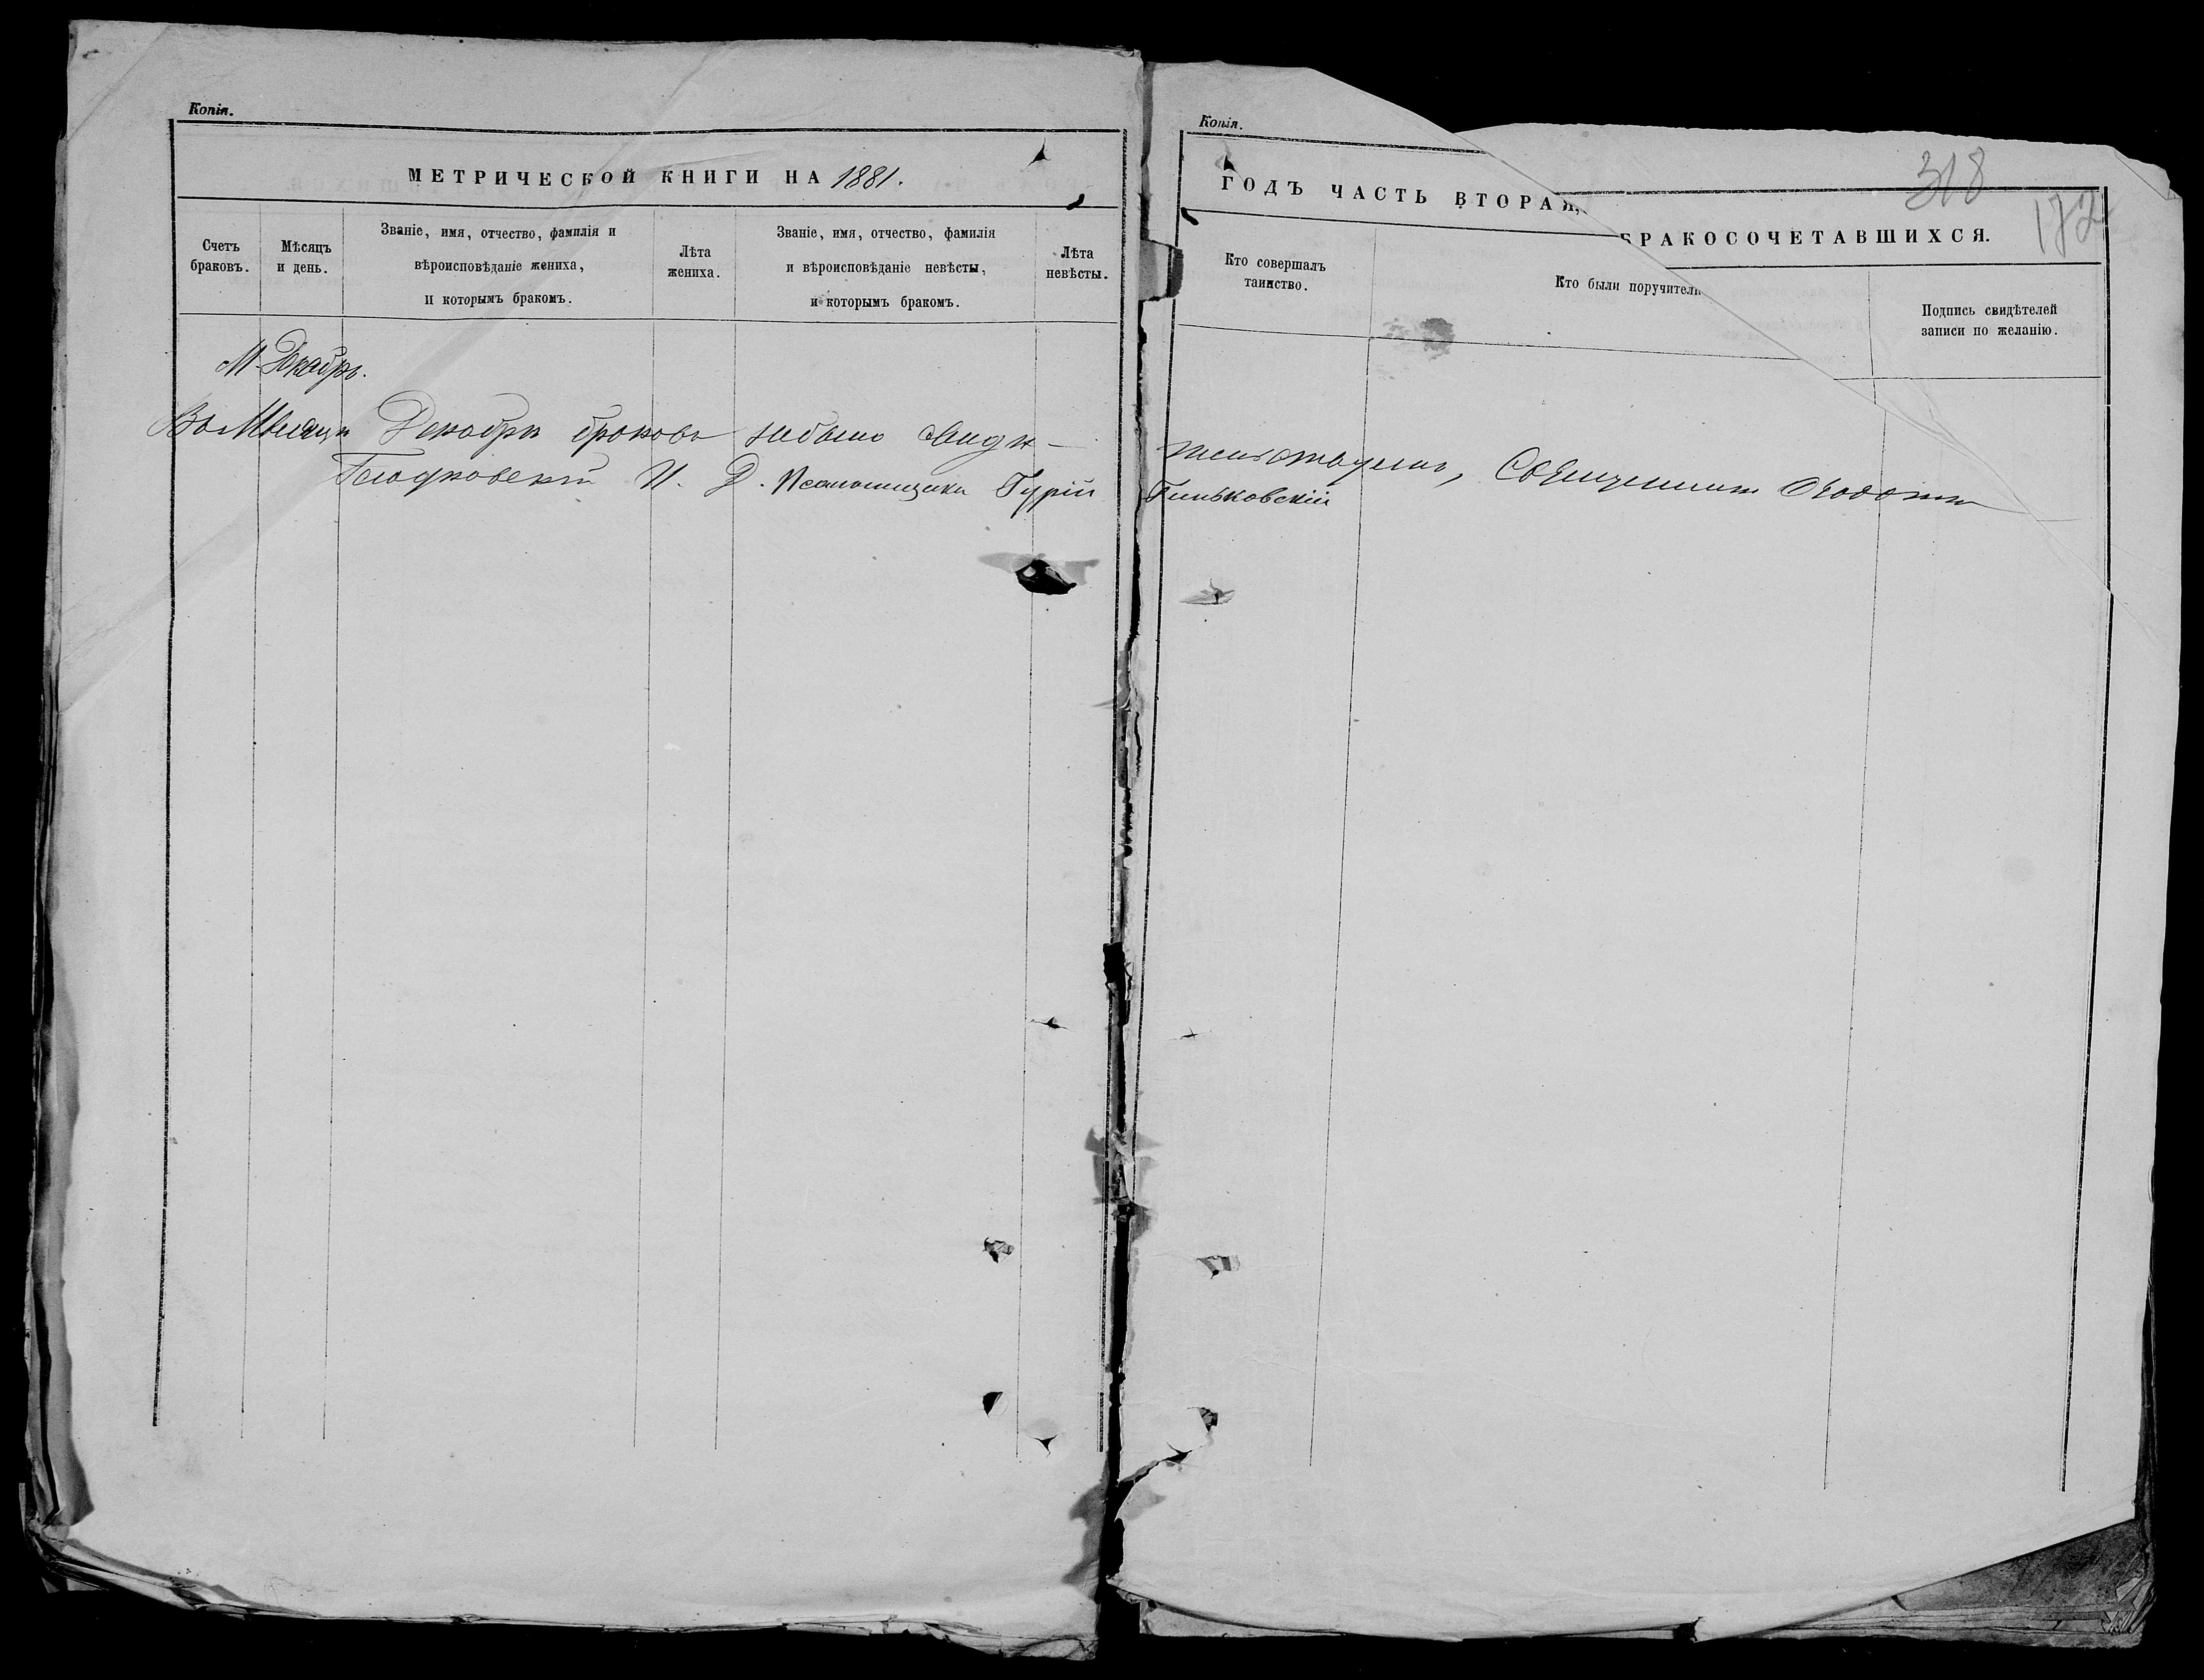 Копія.
МЕТРИЧЕСКОЙ КНИГИ НА 1881.
Счетъ браковъ.
Мѣсяцъ и день.
Званіе, имя, отчество, фамилія и вѣроисповѣданіе жениха, и которымъ бракомъ.
Лѣта жениха.
Званіе, имя, отчество, фамилія и вѣроисповѣданіе невѣсты, и которымъ бракомъ.
Лѣта невѣсты.
М. Декабрь.
Въ Мѣсяцѣ Декабрѣ браковъ небыло
И. Д. Псаломщика Гурій
Копія.
318
172
ГОДЪ ЧАСТЬ ВТОРАЯ,
БРАКОСОЧЕТАВШИХСЯ.
Кто совершалъ таинство.
Кто были поручители
Подпись свидѣтелей записи по желанію.
Священникъ
Гиньковскій